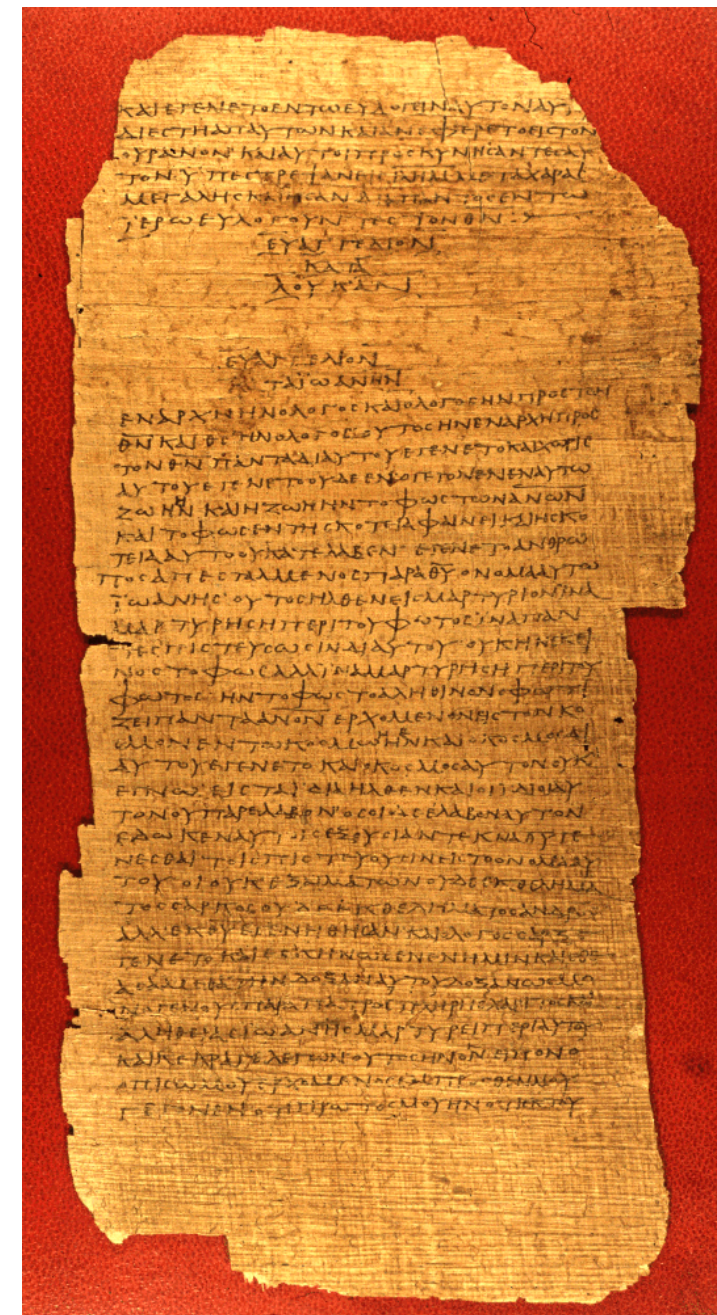 ΚΑΙ ΕΓΕΝΕΤΟ ΕΝ ΤΩ ΕΥΛΟΓΕΙΝ ΑΥΤΟΝ ΑΥ
ΔΙΕΣΤΗ ΑΠ ΑΥΤΩΝ ΚΑΙ ΑΝΕΦΕΡΕΤΟ ΕΙΣ ΤΟΝ
ΟΥΡΑΝΟΝ ΚΑΙ ΑΥΤΟΙ ΠΡΟΣΚΥΝΗΣΑΝΤΕΣ ΑΥ
ΤΟΝ ΥΠΕΣΤΡΕΨΑΝ ΜΕΤΑ ΧΑΡΑΣ
ΜΕΓΑΛΗΣ ΚΑΙ ΗΣΑΝ ΔΙΑ ΠΑΝΤΟΣ ΕΝ ΤΩ
ΪΕΡΩ ΕΥΛΟΓΟΥΝΤΕΣ ΤΟΝ ΘΝ
ΕΥΑΓΓΕΛΙΟΝ
ΚΑΤΑ
ΛΟΥΚΑΝ
ΕΥΑΓΓΕΛΙΟΝ
ΚΑΤΑ ΙΩΑΝΗΝ
ΕΝ ΑΡΧΗ ΗΝ Ο ΛΟΓΟΣ ΚΑΙ Ο ΛΟΓΟΣ ΗΝ ΠΡΟΣ ΤΟΝ
ΘΝ ΚΑΙ ΘΣ ΗΝ Ο ΛΟΓΟΣ ΟΥΤΟΣ ΗΝ ΕΝ ΑΡΧΗ ΠΡΟΣ
ΤΟΝ ΘΝ ΠΑΝΤΑ ΔΙ ΑΥΤΟΥ ΕΓΕΝΕΤΟ ΚΑΙ ΧΩΡΙΣ
ΑΥΤΟΥ ΕΓΕΝΕΤΟ ΟΥΔΕ ΕΝ Ο ΓΕΓΟΝΕΝ ΕΝ ΑΥΤΩ
ΖΩΗ ΗΝ ΚΑΙ Η ΖΩΗ ΗΝ ΤΟ ΦΩΣ ΤΩΝ ΑΝΩΝ
ΚΑΙ ΤΟ ΦΩΣ ΕΝ ΤΗ ΣΚΟΤΕΙΑ ΦΑΙΝΕΙ ΚΑΙ Η ΣΚΟ
ΤΕΙΑ ΑΥΤΟ ΟΥ ΚΑΤΕΛΑΒΕΝ ΕΓΕΝΕΤΟ ΑΝΘΡΩ
ΠΟΣ ΑΠΕΣΤΑΛΜΕΝΟΣ ΠΑΡΑ ΘΥ ΟΝΟΜΑ ΑΥΤΩ
ΪΩΑΝΗΣ ΟΥΤΟΣ ΗΛΘΕΝ ΕΙΣ ΜΑΡΤΥΡΙΟΝ ΙΝΑ
ΜΑΡΤΥΡΗΣΗ ΠΕΡΙ ΤΟΥ ΦΩΤΟΣ ΙΝΑ ΠΑΝ
ΤΕΣ ΠΙΣΤΕΥΣΩΣΙΝ ΔΙ ΑΥΤΟΥ ΟΥΚ ΗΝ ΕΚΕΙ
ΝΟΣ ΤΟ ΦΩΣ ΑΛΛ ΙΝΑ ΜΑΡΤΥΡΗΣΗ ΠΕΡΙ ΤΟΥ
ΦΩΤΟΣ ΗΝ ΤΟ ΦΩΣ ΤΟ ΑΛΗΘΙΝΟΝ Ο ΦΩΤΙ
ΖΕΙ ΠΑΝΤΑ ΑΝΟΝ ΕΡΧΟΜΕΝΟΝ ΗΣ ΤΟΝ ΚΟ
ΣΜΟΝ ΕΝ ΤΩ ΚΟΣΜΩ ΗΝ ΚΑΙ Ο ΚΟΣΜΟΣ ΔΙ
ΑΥΤΟΥ ΕΓΕΝΕΤΟ ΚΑΙ Ο ΚΟΣΜΟΣ ΑΥΤΟΝ ΟΥΚ
ΕΓΝΩ ΕΙΣ ΤΑ ΙΔΙΑ ΗΛΘΕΝ ΚΑΙ ΟΙ ΙΔΙΟΙ ΑΥ
ΤΟΝ ΟΥ ΠΑΡΕΛΑΒΟΝ ΟΣΟΙ ΔΕ ΕΛΑΒΟΝ ΑΥΤΟΝ
ΕΔΩΚΕΝ ΑΥΤΟΙΣ ΕΞΟΥΣΙΑΝ ΤΕΚΝΑ ΘΥ ΓΕ
ΝΕΣΘΑΙ ΤΟΙΣ ΠΙΣΤΕΥΟΥΣΙΝ ΕΙΣ ΤΟ ΟΝΟΜΑ ΑΥ
ΤΟΥ ΟΙ ΟΥΚ ΕΞ ΑΙΜΑΤΩΝ ΟΥΔΕ ΕΚ ΘΕΛΗΜΑ
ΤΟΣ ΣΑΡΚΟΣ ΟΥΔΕ ΕΚ ΘΕΛΗΜΑΤΟΣ ΑΝΔΡΟΣ
ΑΛΛΑ ΕΚ ΘΥ ΕΓΕΝΗΘΗΣΑΝ ΚΑΙ Ο ΛΟΓΟΣ ΣΑΡΞ Ε
ΓΕΝΕΤΟ ΚΑΙ ΕΣΚΗΝΩΣΕΝ ΕΝ ΗΜΙΝ ΚΑΙ ΕΘΕ
ΑΣΑΜΕΘΑ ΤΗΝ ΔΟΞΑΝ ΑΥΤΟΥ ΔΟΞΑΝ ΩΣ ΜΟ
ΝΟΓΕΝΟΥΣ ΠΑΡΑ ΠΑΤΡΟΣ ΠΛΗΡΗΣ ΧΑΡΙΤΟΣ ΚΑΙ
ΑΛΗΘΕΙΑΣ ΙΩΑΝΗΣ ΜΑΡΤΥΡΕΙ ΠΕΡΙ ΑΥΤΟΥ
ΚΑΙ ΚΕΚΡΑΓΕ ΛΕΓΩΝ ΟΥΤΟΣ ΗΝ ΟΝ ΕΙΠΟΝ Ο
ΟΠΙΣΩ ΜΟΥ ΕΡΧΟΜΕΝΟΣ ΕΜΠΡΟΣΘΕΝ ΜΟΥ
ΓΕΓΟΝΕΝ ΟΤΙ ΠΡΩΤΟΣ ΜΟΥ ΗΝ ΟΤΙ ΕΚ ΤΟΥ